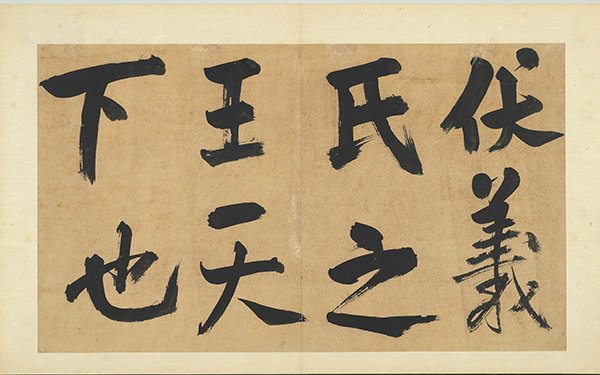 伏羲
氏之
王天
下也